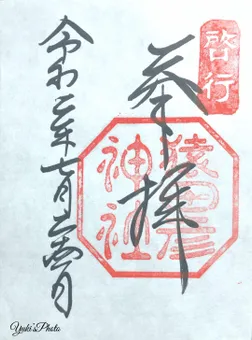 啓行
奉拝
猿田彦
神社
令和二年七月二 日
Yuki's Photo